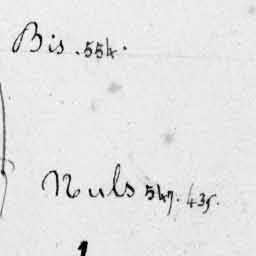 Bis . 554 .
Nuls 547. 435.